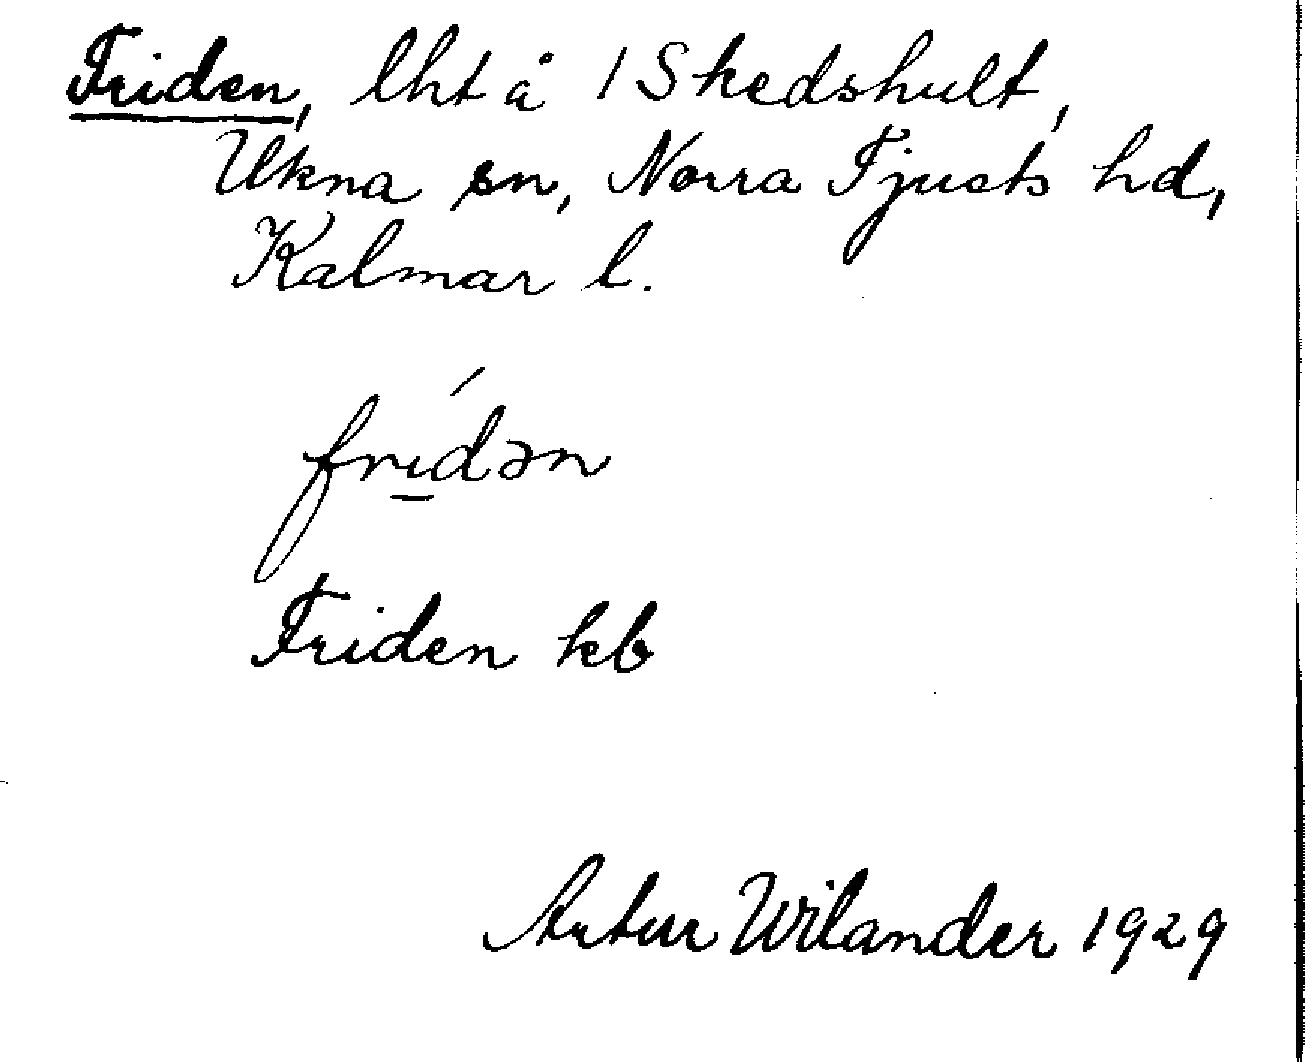 Friden, lht å 1 Skedshult,
Ukna sn, Norra Tjusts hd,
Kalmar l.
fri̲də́n
Friden kb
Artur Wilander 1929